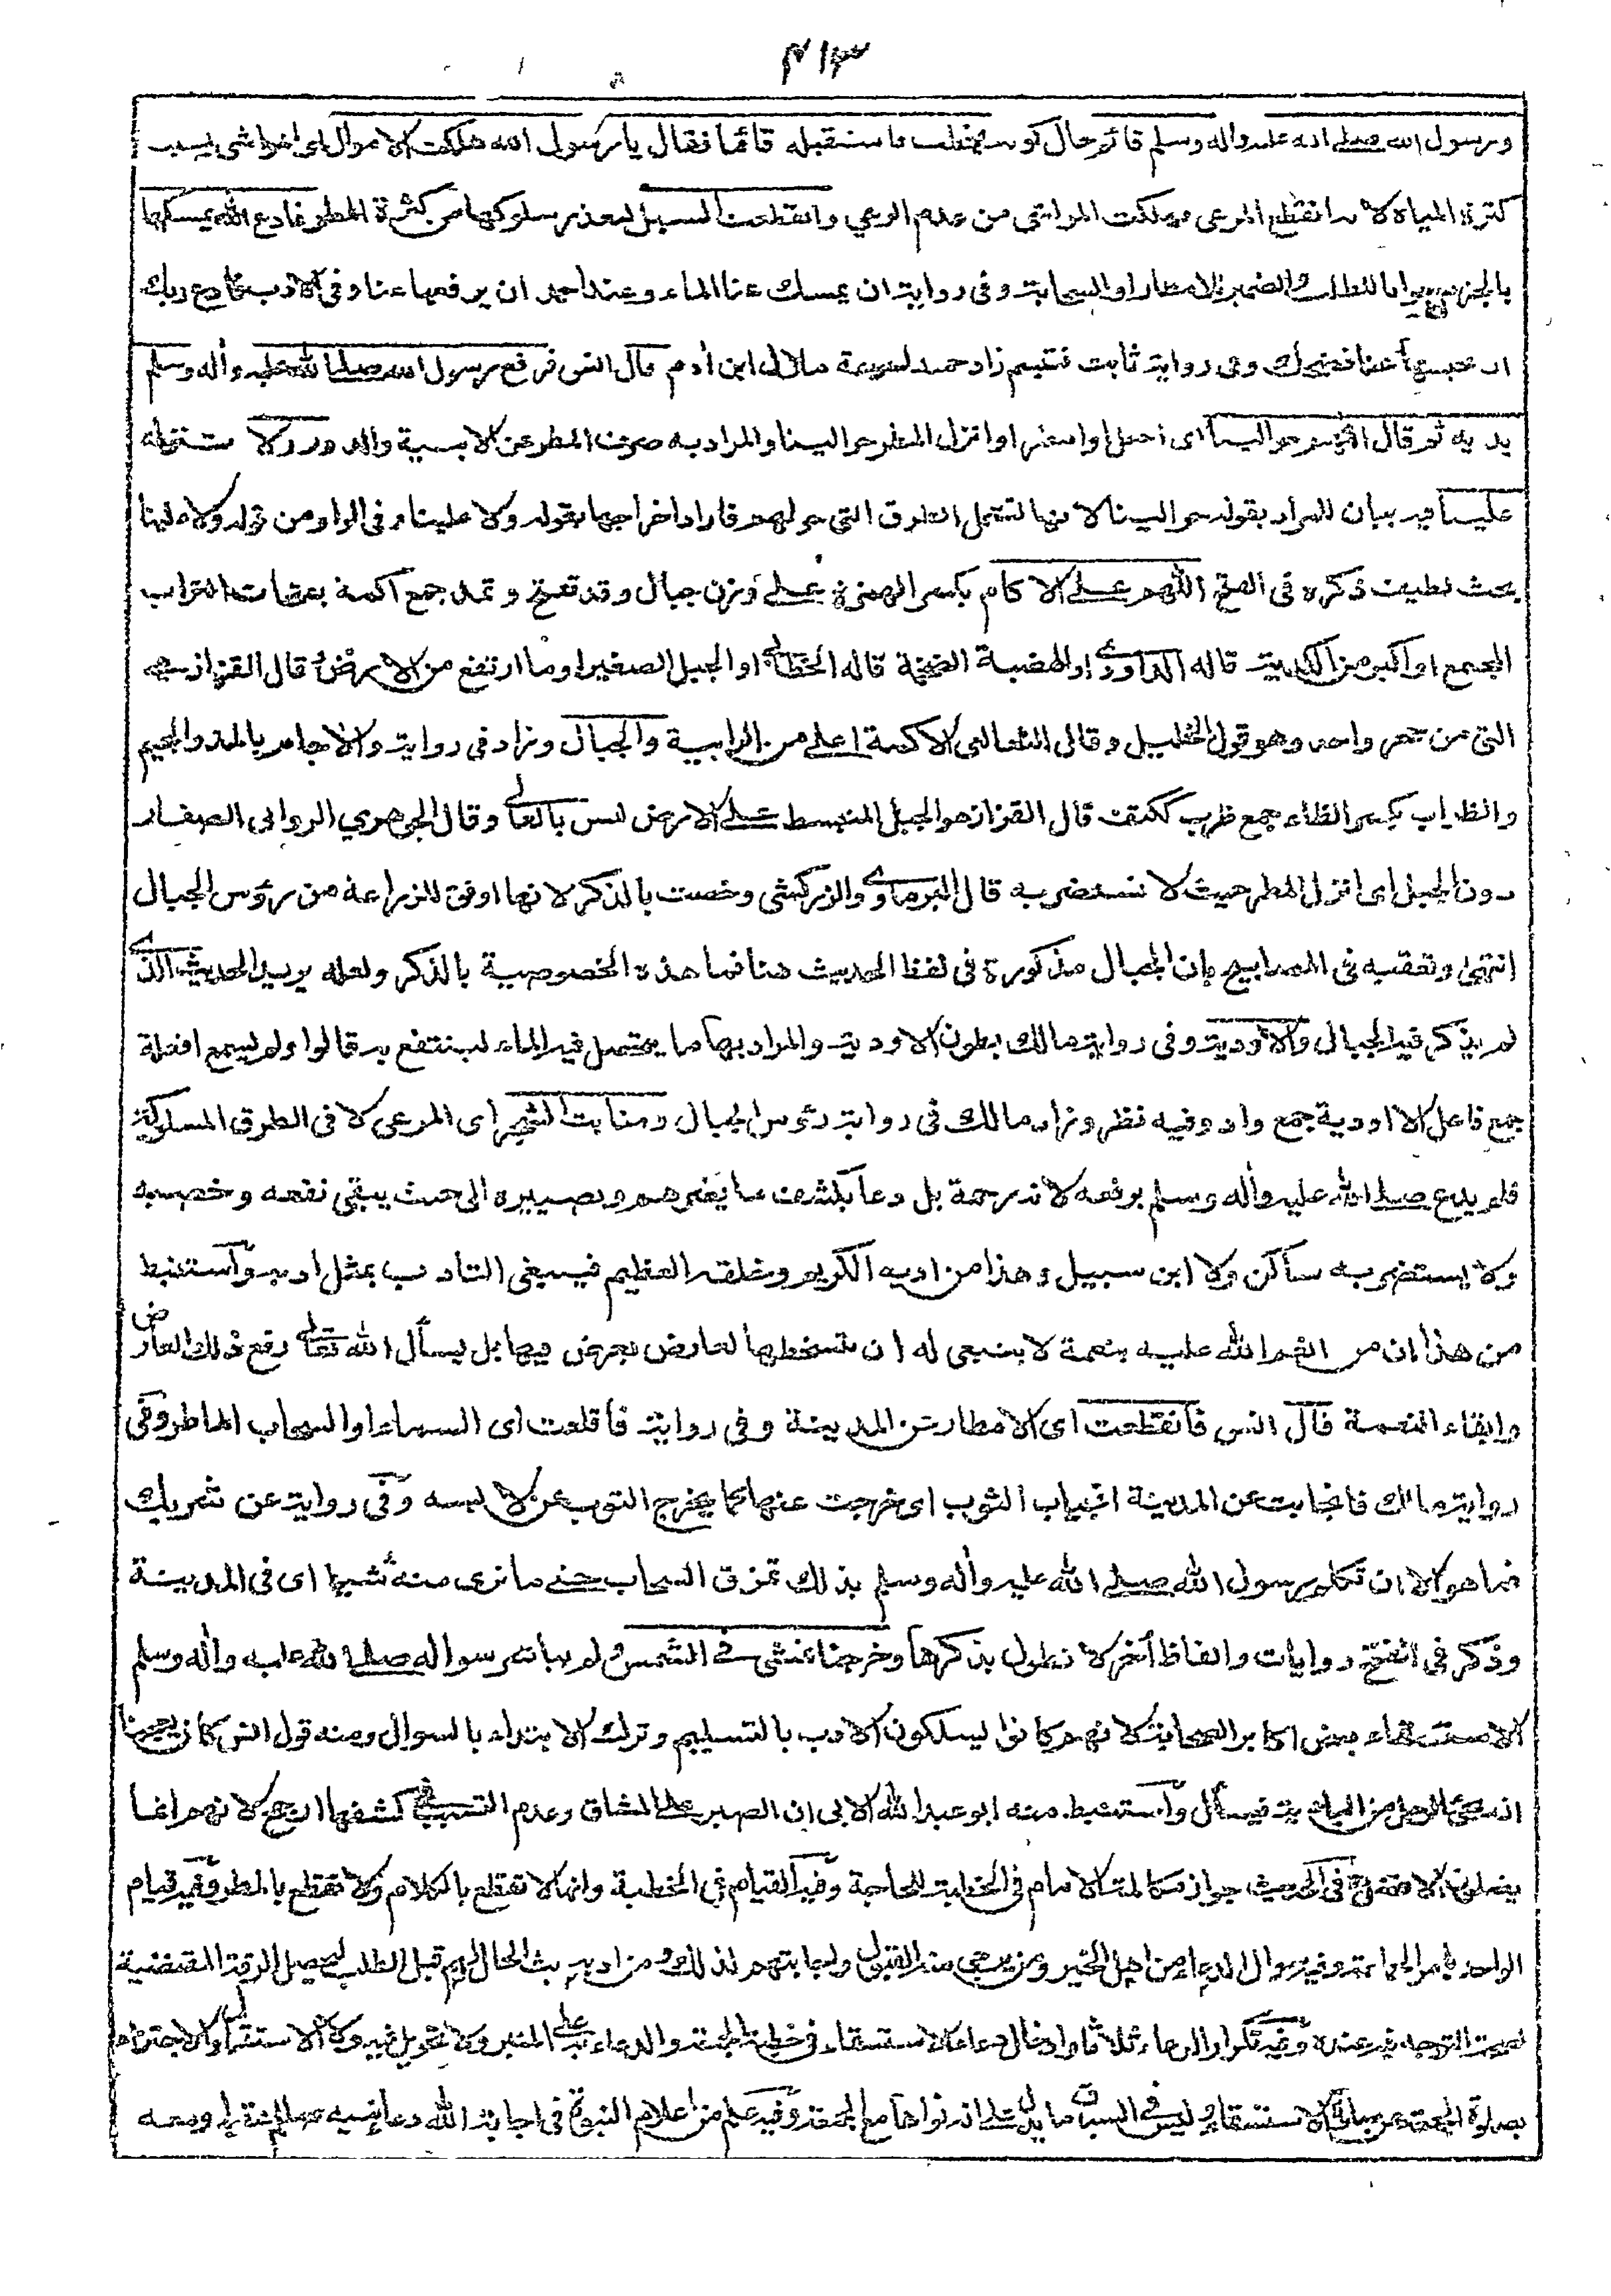 ٤١٣
ورسول الله صلى الله عليه واله وسلم قائم حال كونه يخطب فاستقبله قائما فقال يا رسول الله هلكت الاموال اى المواشى بسبب
كثرة المياه لانه انقطع المرعى فهلكت المواشى من عدم الرعي وانقطعت السبل لتعذر سلوكها من كثرة المطر فادع الله يمسكها
بالجزم جوابا للطلب والضمير للامطار او السحابة وفى رواية ان يمسك عنا الماء وعند احمد ان يرفعها عنا وفى الادب فادع ربك
ان يحبسها عنا فضحك وفى رواية ثابت فتبسم زاد حميد لسرعة ملال ابن أدم قال انس فرفع رسول الله صلى الله عليه وأله وسلم
يديه ثم قال اللهم حوالينا اى اجعل او امطر او انزل المطر حوالينا والمراد به صرف المطر عن الابنية والدور ولا تنزله
علينا فيه بيان للمراد بقوله حوالينا لانها تشمل الطرق التى حولهم فاراد اخراجها بقوله ولا علينا وفى الواو من قوله ولا علينا
بحث لطيف ذكره فى الفتح اللهم على الاكام بكسر الهمزة على وزن جبال وقد تفتح وتمد جمع أكمة بفتحات التراب
المجتمع او اكبر من الكدية قاله الداودى او الهضبة الضخمة قاله الخطابى او الجبل الصغير او ما ارتفع من الارض قال القزاز هى
التى من حجر واحد وهو قول الخليل وقال الثعالبى الاكمة اعلى من الرابية والجبال وزاد فى رواية والأجام بالمد والجيم
والظراب بكسر الظاء جمع ظرب ككتف قال القزاز هو الجبل المنبسط على الارض ليس بالعالى وقال الجوهري الروابى الصغار
دون الجبل اى انزل المطر حيث لا نستضر به قال البرماوى والزركشى وخصت بالذكر لانها اوفق للزراعة من رؤس الجبال
انتهى وتعقبه فى المصابيح بان الجبال مذكورة فى لفظ الحديث هنا فما هذه الخصوصية بالذكر ولعله يريد الحديث الذى
لم يذكر فيه الجبال والأودية وفى رواية مالك بطون الاودية والمراد بها ما يحتمل فيه الماء لينتفع به قالوا ولم يسمع افعلة
جمع فاعل الا اودية جمع واد وفيه نظر وزاد مالك فى رواية رؤس الجبال ومنابت الشجر اى المرعى لا فى الطرق المسلوكة
فلم يدع صلى الله عليه وأله وسلم برفعه لانه رحمة بل دعا بكشف ما يضرهم وبصييره الى حيث يبقى نفعه وخصبه
ولا يستضر به ساكن ولا ابن سبيل وهذا من ادبه الكريم وخلقه العظيم فينبغى التادب بمثل ادبه وأستنبط
من هذا ان من انعم الله عليه بنعمة لا ينبغى له ان يتسخطها لعارض يعرض فيها بل يسأل الله تعالى رفع ذلك العارض
وابقاء النعمة قال انس فأنقطعت اى الامطار عن المدينة وفى رواية فأقلعت اى السماء او السحاب الماطر وفى
رواية مالك فانجابت عن المدينة انجياب الثوب اى خرجت عنها كما يخرج الثوب عن لابسه وفى رواية عن شريك
فما هو الا ان تكلم رسول الله صلى الله عليه وأله وسلم بذلك تمزق السحاب حتى ما نرى منه شيئا اى فى المدينة
وذكر فى الفتح روايات والفاظ أخر لا نطول بذكرها وخرجنا نمشى فى الشمس ولم يباشر سواله صلى الله عليه وأله وسلم
الاستسقاء بعض اكابر الصحابة لانهم كانوا يسلكون الادب بالتسليم وترك الابتداء بالسوال ومنه قول انس كان يعجبنا
ان يجئ الرجل من البادية فيسأل وأستنبط منه ابو عبد الله الابى ان الصبر على المشاق وعدم التسبب فى كشفها ارجح لانهم انما
يفعلون الافضل وفى الحديث جواز مكالمة الامام فى الخطبة للحاجة وفيه القيام فى الخطبة وانها لا تنقطع بالكلام ولا تنقطع بالمطر وفيه قيام
الواحد بامر الجماعة وفيه سوال الدعاء من اهل الخير ومن يرجى منه القبول واجابتهم لذلك ومن ادبه بث الحال لهم قبل الطلب لتحصيل الرقة المقتضية
لصحة التوجه فيه عنده وفيه تكرار الدعاء ثلاثا وادخال دعاء الاستسقاء فى خطبة الجمعة والدعاء به على المنبر ولا تحويل فيه ولا الاستقبال والاجتزاء
بصلوة الجمعة عن صلوة الاستسقاء وليس فى السياق ما يدل على انه نواها مع الجمعة وفيه علم من اعلام النبوة فى اجابة الله دعاء نبيه